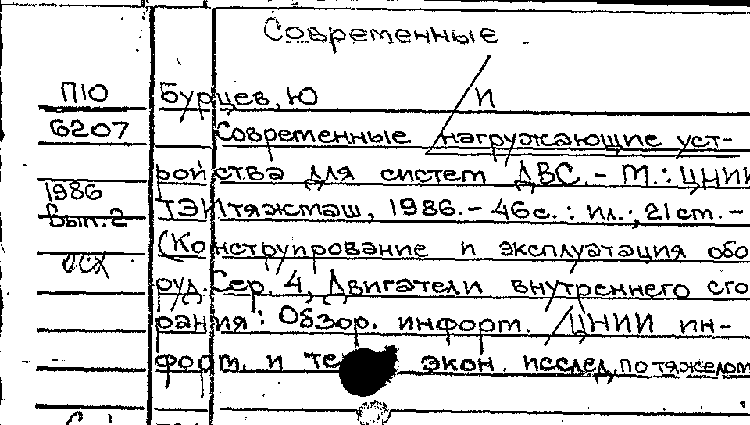 Современные
П10 Бурцев, Ю И
6207 Современные нагружающие уст-
ройства для систем ДВС. - М.: ЦНИИ
1986
Вып.2 ТЭИтяжмаш, 1986. - 46с.: ил.; 21см. -
(Конструирование и эксплуатация обо
руд. Сер. 4, Двигатели внутреннего сго
рания: Обзор. информ. / ЦНИИ ин-
форм. и экон. исслед. по тяжелом